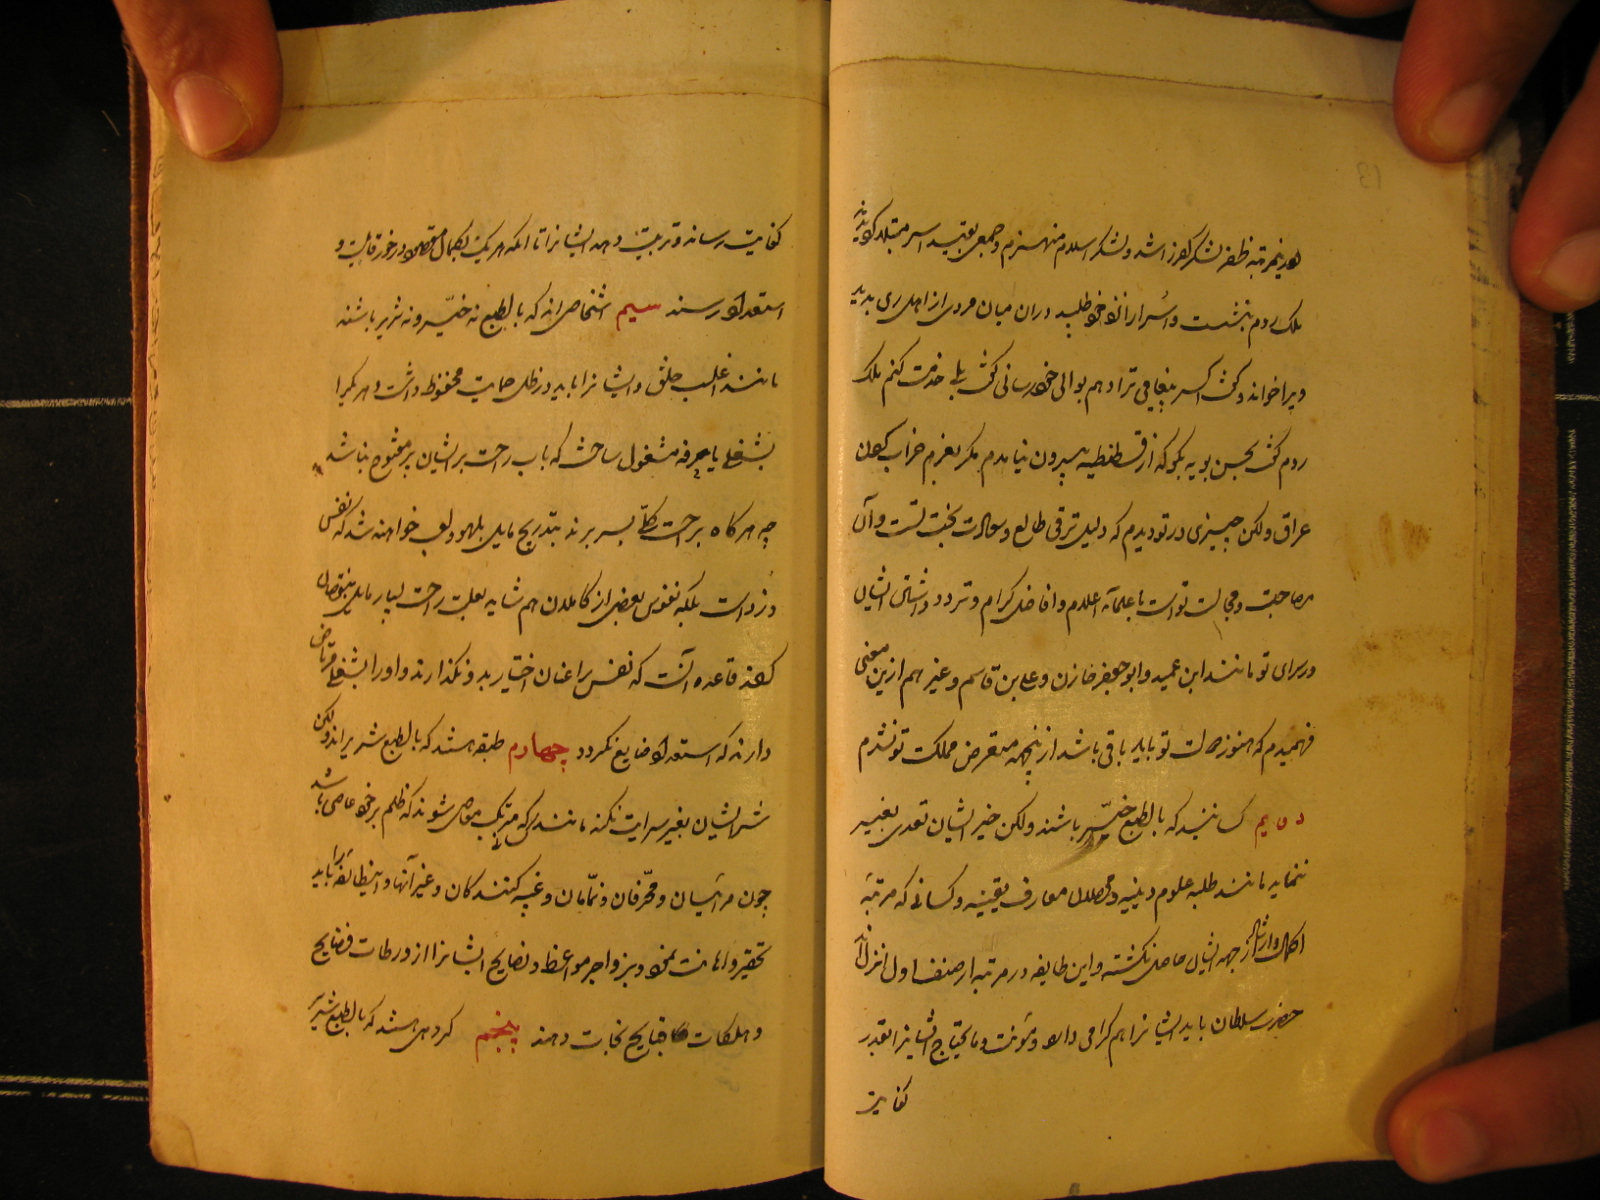 13
هدینمرتبه ظفر لشکر کفر را شد و لشکر اسلام منهزم و جمعی بقید اسر مبتلا گردیدند
ملک روم بنشست و اسرا را نزد خود طلبید دران میان مردی از اهل ری بدید
ویرا خواند و گفت اگر پیغامی ترا دهم بوالی خود رسانی گفت بلی خدمت کنم ملک
روم گفت بحسن بویه بگو که از قسطنطنیه بیرون نیامدم مگر بعزم خراب کردن
عراق ولکن چیزی در تو دیدم که دلیل ترقی طالع و سعادت بخت تست و آن
مصاحبت و مجالست تو است با علمآء اعلام و افاضل کرام و تردد داشتن ایشان
در سرای تو مانند ابن عمید و ابو جعفر خازن و علی بن قاسم و غیر هم ازین معنی
فهمیدم که هنوز دولت تو باید باقی باشد ازینجهة متعرض مملکت تو نشدم
دویم کسانیند که بالطبع خیّر باشند ولکن خیر ایشان تعدی بغیر
ننماید مانند طلبه علوم دینیه و محصلان معارف یقینیه و کسانی که مرتبهٔ
اکمال و ارشاد از جهة ایشان حاصل نگشته و این طایفه در مرتبه از صنف اول انزل اند
حضرت سلطان باید ایشانرا هم گرامی دارد و مؤنت و مایحتاج ایشانرا بقدر
کفایت
کفایت رساند و تربیت دهد ایشانرا تا آنکه هریک بکمال مقصود در خور قابلیت و
استعداد رسند سیم اشخاصی اند که بالطبع نه خیّر و نه شریر باشند
مانند اغلب خلق و ایشانرا باید در ظل حمایت محفوظ داشت و هر یکرا
بشغلی یا بحرفه مشغول ساخت که باب راحت بر ایشان مفتوح نباشد
چه هرگاه براحت کلّی بسر برند بتدریج مایل بلهو و لعب خواهند شد که نفس
دزد است بلکه نفوس بعضی از کاملان هم شاید بعلت راحت بسیار مایل بنقصان
کردند قاعده آنست که نفس را عنان اختیار بدو نگذارند و او را بشغلی مرتاض
دارند که استعداد ضایع نگردد چهارم طبقه هستند که بالطبع شریراند ولکن
شر ایشان بغیر سرایت نکند مانند کسی که مرتکب معاصی شوند که ظلم بر خود عاصی باشد
چون مرائیان و محرّفان و نمّامان و غیبه کنندگان و غیر آنها و اینطایفه را باید
تحقیر و اهانت نمود و بزواجر مواعظ و نصایح ایشانرا از ورطات فضایح
و هلکات قبایح نجات دهند پنجم گروهی هستند که بالطبع شریر